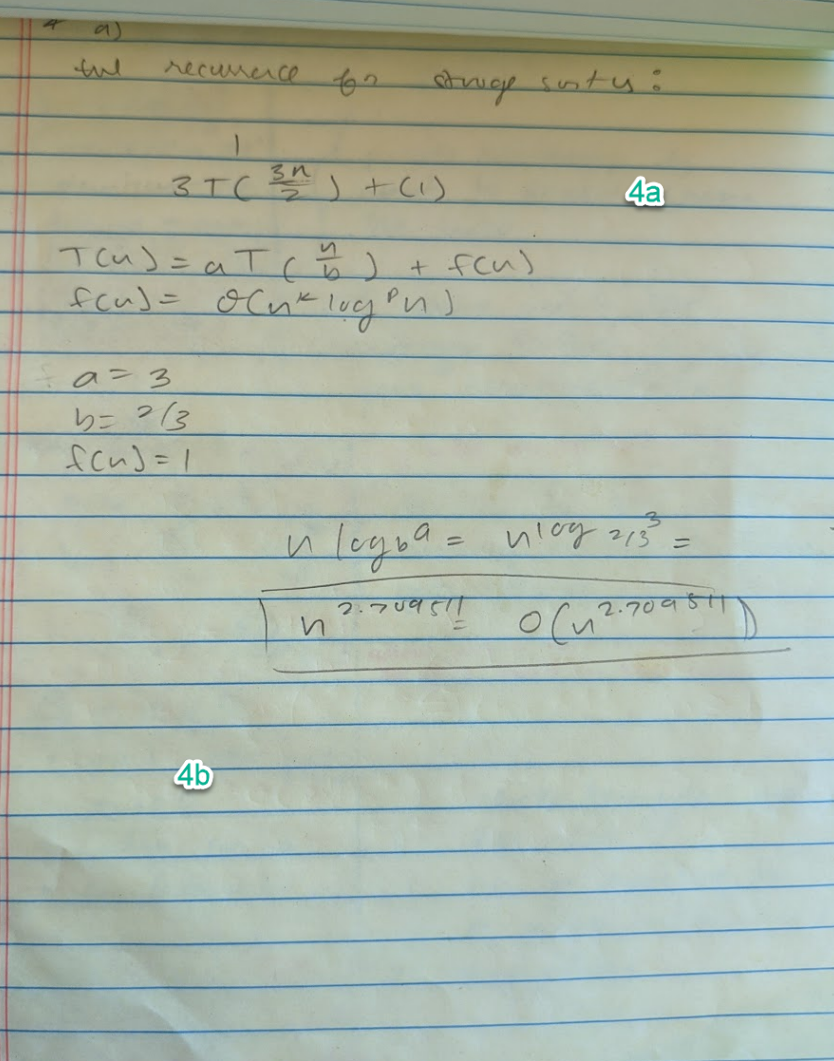 4 a)
the recurrence for strange sorty :
1
3T(3n/2) + (1)
4a
T(n) = aT(n/b) + f(n)
f(n) = θ(n^k log^p n)
a = 3
b = 2/3
f(n) = 1
n log_b a = n log 2/3^3 =
n^2.709511 = O(n^2.709511)
4b